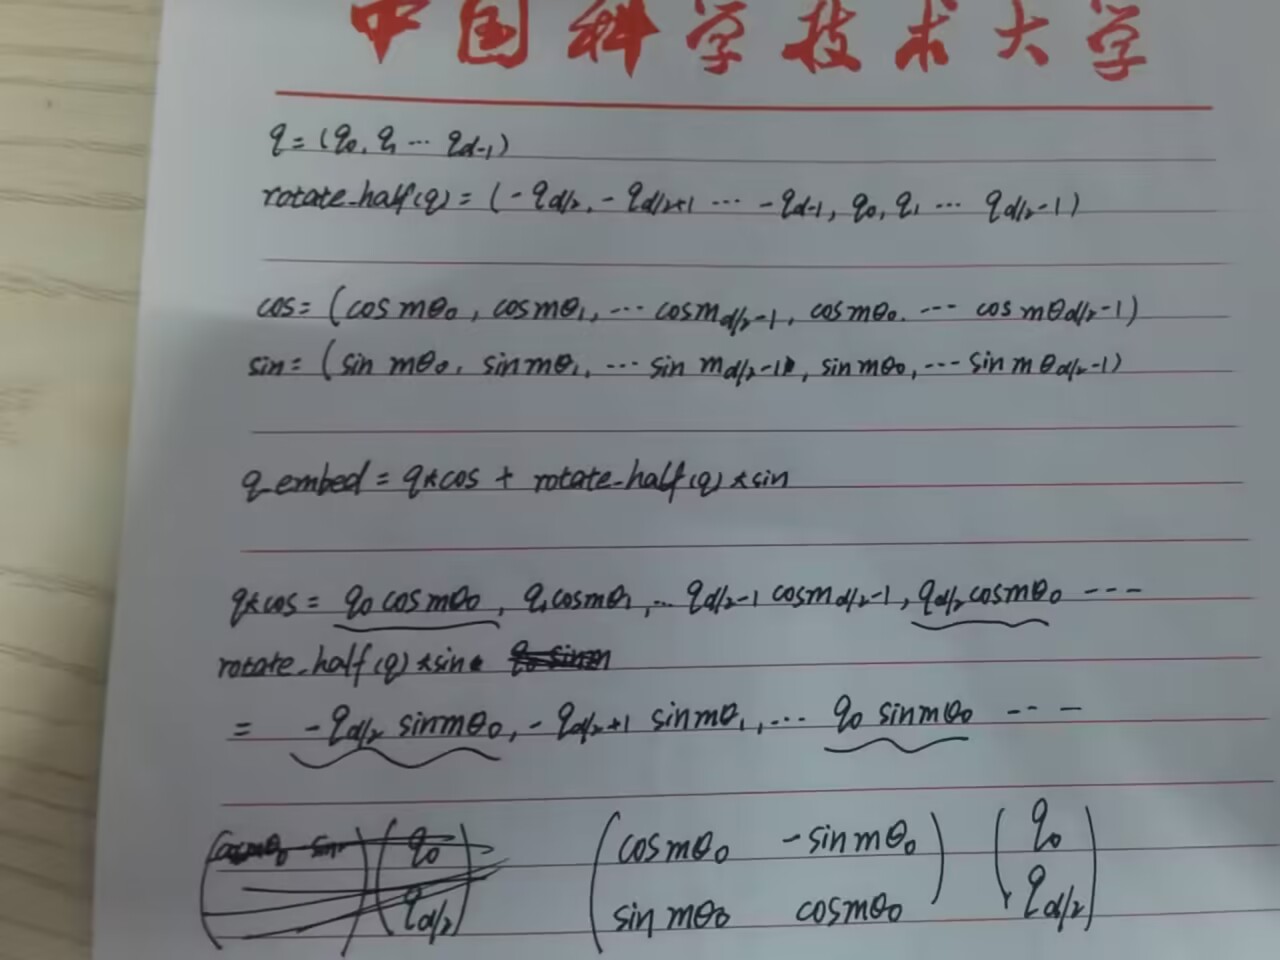 中国科学技术大学
q = (q₀, q₁ ⋯ q_{d-1})
rotate_half(q) = (-q_{d/2}, -q_{d/2+1} ⋯ -q_{d-1}, q₀, q₁ ⋯ q_{d/2-1})
cos = (cos mθ₀, cos mθ₁, ⋯ cos m_{d/2-1}, cos mθ₀, ⋯ cos mθ_{d/2-1})
sin = (sin mθ₀, sin mθ₁, ⋯ sin m_{d/2-1}, sin mθ₀, ⋯ sin mθ_{d/2-1})
q_embed = q*cos + rotate_half(q)*sin
q*cos = q₀ cos mθ₀, q₁ cos mθ₁, ⋯ q_{d/2-1} cos m_{d/2-1}, q_{d/2} cos mθ₀ ----
rotate_half(q)*sin
= -q_{d/2} sin mθ₀, -q_{d/2+1} sin mθ₁, ⋯ q₀ sin mθ₀ ---
(q₀ (cos mθ₀ -sin mθ₀) (q₀
q_{d/2}) (sin mθ₀ cos mθ₀) q_{d/2})